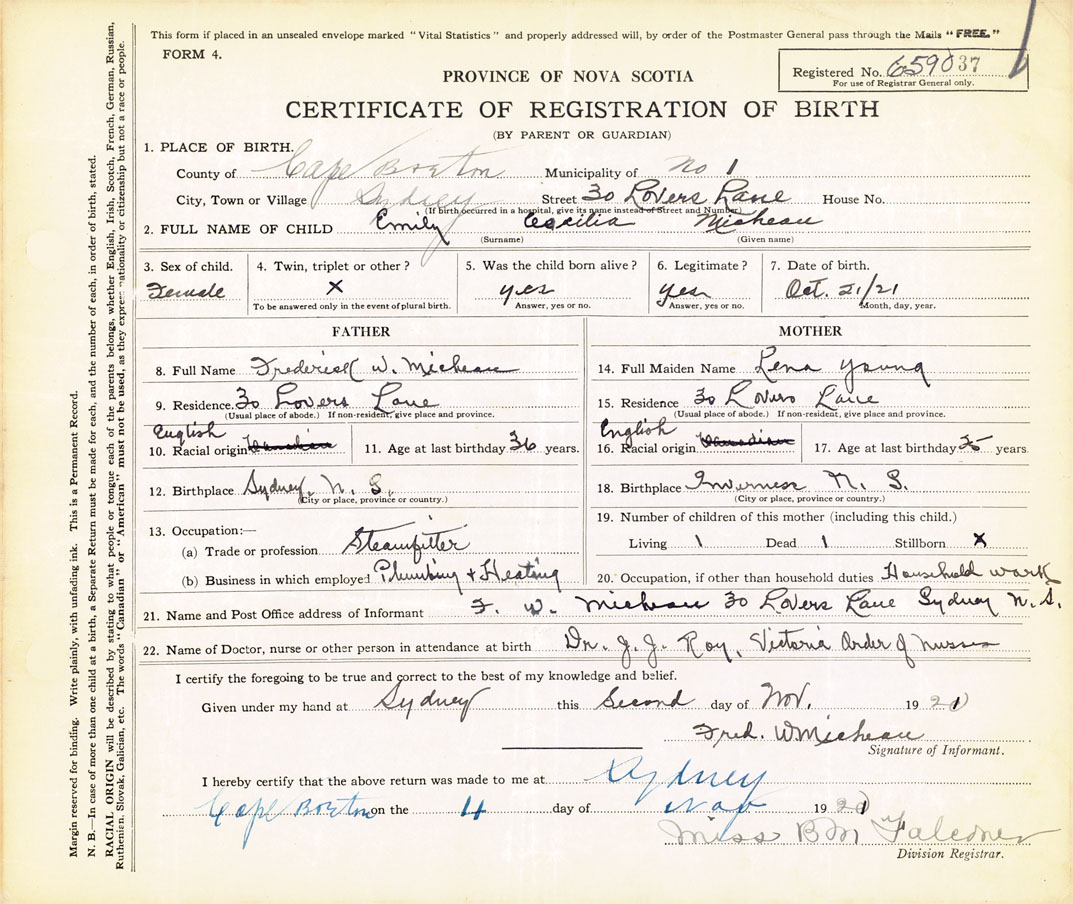 This form if placed in an unsealed envelope marked "Vital Statistics" and properly addressed will, by order of the Postmaster General pass through the Mails "FREE."
FORM 4.
Registered No. 659037
For use of Registrar General only.
PROVINCE OF NOVA SCOTIA
CERTIFICATE OF REGISTRATION OF BIRTH
(BY PARENT OR GUARDIAN)
1. PLACE OF BIRTH.
County of Cape Breton Municipality of No 1
City, Town or Village Sydney Street 30 Lovers Lane House No.
(If birth occurred in a hospital, give its name instead of Street and Number)
2. FULL NAME OF CHILD Emily Cecilia Micheau
(Surname) (Given name)
3. Sex of child. 4. Twin, triplet or other? 5. Was the child born alive? 6. Legitimate? 7. Date of birth.
Female X yes yes Oct. 21/21
To be answered only in the event of plural birth. Answer, yes or no. Answer, yes or no. Month, day, year.
FATHER
8. Full Name Frederick W. Micheau
9. Residence. 30 Lovers Lane
(Usual place of abode.) If non-resident, give place and province.
English
10. Racial origin Canadian 11. Age at last birthday 36 years.
12. Birthplace Sydney, N. S.
(City or place, province or country.)
13. Occupation:—
(a) Trade or profession Steamfitter
(b) Business in which employed Plumbing + Heating
MOTHER
14. Full Maiden Name Lena Young
15. Residence 30 Lovers Lane
(Usual place of abode.) If non-resident, give place and province.
English
16. Racial origin Canadian 17. Age at last birthday years
18. Birthplace Inverness N. S.
(City or place, province or country.)
19. Number of children of this mother (including this child.)
Living 1 Dead 1 Stillborn X
20. Occupation, if other than household duties Household work
21. Name and Post Office address of Informant F. W. Micheau 30 Lovers Lane Sydney N. S.
22. Name of Doctor, nurse or other person in attendance at birth Dr. J. J. Roy, Victoria Order of Nurses
I certify the foregoing to be true and correct to the best of my knowledge and belief.
Given under my hand at Sydney this Second day of Nov. 1921
Fred. W Micheau
Signature of Informant.
I hereby certify that the above return was made to me at Sydney
Cape Breton on the 4 day of Nov 1921
Miss B M Falconer
Division Registrar.
Margin reserved for binding. Write plainly, with unfading ink. This is a Permanent Record.
N. B.—In case of more than one child at a birth, a Separate Return must be made for each, and the number of each, in order of birth, stated.
RACIAL ORIGIN will be described by stating to what people or tongue each of the parents belongs, whether English, Irish, Scotch, French, German, Russian,
Ruthenien, Slovak, Galician, etc. The words "Canadian" or "American" must not be used, as they express nationality or citizenship but not a race or people.